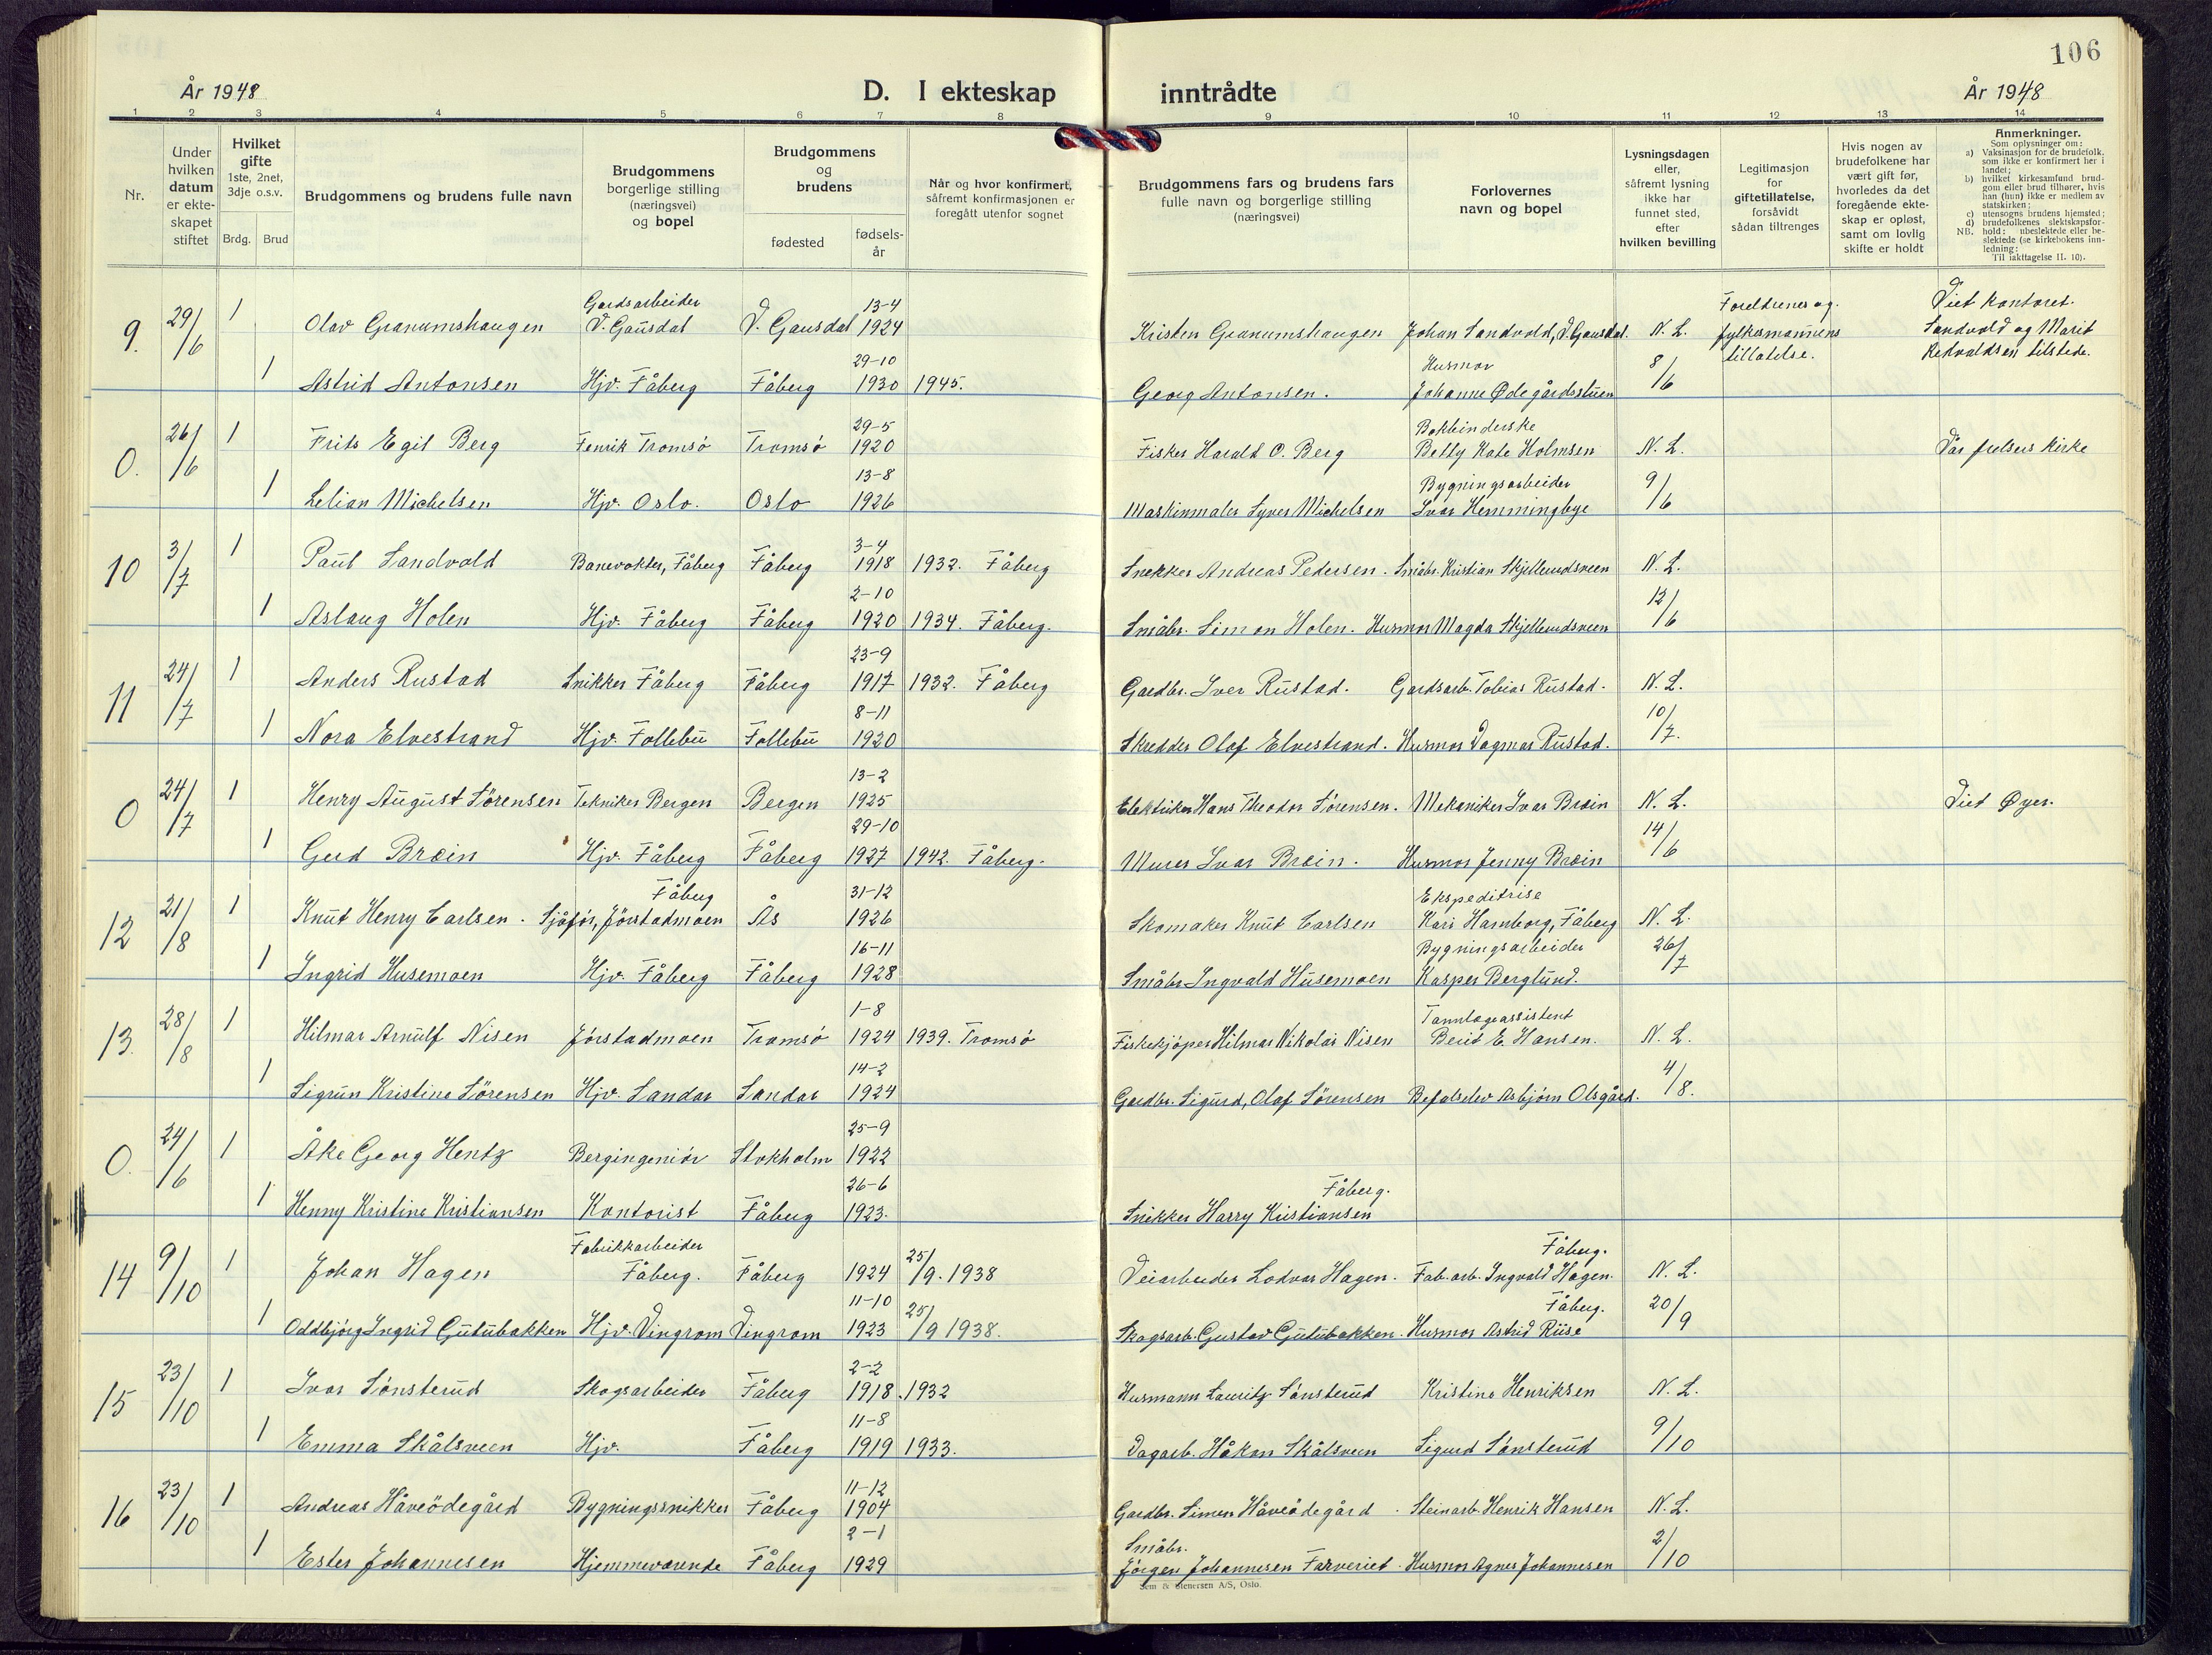 106
År 1948
D. I ekteskap inntrådte
År 1948
1 2 3 4 5 6 7 8 9 10 11 12 13 14
Nr.
Under hvilken datum er ekte-skapet stiftet
Hvilket gifte 1ste, 2net, 3dje o.s.v.
Brdg. Brud
Brudgommens og brudens fulle navn
Brudgommens borgerlige stilling (næringsvei) og bopel
Brudgommens og brudens
fødested
fødsels-år
Når og hvor konfirmert, såfremt konfirmasjonen er foregått utenfor sognet
Brudgommens fars og brudens fars fulle navn og borgerlige stilling (næringsvei)
Forlovernes navn og bopel
Lysningsdagen eller, såfremt lysning ikke har funnet sted, efter hvilken bevilling
Legitimasjon for giftetillatelse, forsåvidt sådan tiltrenges
Hvis nogen av brudefolkene har vært gift før, hvorledes da det foregående ekte-skap er opløst, samt om lovlig skifte er holdt
Anmerkninger.
Som oplysninger om:
a) Vaksinasjon for de brudefolk, som ikke er konfirmert her i landet;
b) hvilket kirkesamfund brud-gom eller brud tilhører, hvis han (hun) ikke er medlem av statskirken;
c) utensogns brudens hjemsted;
d) brudefolkenes slektskapsfor-hold: ubeslektede eller be-slektede (se kirkebokens inn-ledning;
NB.
Til iakttagelse II. 10).
9. 29/6 1 Olav Granumshaugen Gardsarbeider V. Gausdal V. Gausdal 13-4 1924 Kristen Granumshaugen Johan Sandvold, V. Gausdal. N. L. Foreldrenes og fylkesmannens tillatelse. Viet kontoret. Sandvold og Marit Redvaldsen tilstede.
1 Astrid Antonsen Hjv. Fåberg Fåberg 29-10 1930 1945. Georg Antonsen. Husmor Johanne Ødegårdsstuen 8/6
0. 26/6 1 Frits Egil Berg Fenrik Tromsö Tromsö 29-5 1920 Fisker Harald O. Berg Bokbinderske Betty Kate Holmsen N. L. Vår frelsers kirke
1 Lelian Michelsen Hjv. Oslo. Oslo 13-8 1926 Maskinmaler Syver Michelsen Bygningsarbeider Ivar Hemmingbye 9/6
10 3/7 1 Paul Sandvold Banevokter, Fåberg Fåberg 3-4 1918 1932. Fåberg Snekker Andreas Pedersen. Småbr. Kristian Skjellerudsveen N. L.
1 Aslaug Holen Hjv. Fåberg Fåberg 2-10 1920 1934. Fåberg. Småbr. Simon Holen. Husmor Magda Skjellerudsveen 12/6
11 24/7 1 Anders Rustad Snikker Fåberg Fåberg 23-9 1917 1932. Fåberg Gardbr. Iver Rustad. Gardsarb. Tobias Rustad. N. L.
1 Nora Elvestrand Hjv. Follebu Follebu 8-11 1920 Skredder Olaf Elvestrand. Husmor Dagmar Rustad. 10/7.
0 24/7 1 Henry August Sörensen Tekniker Bergen Bergen 13-2 1925 Elektriker Hans Theodor Sörensen. Mekaniker Ivar Bræin N. L. Viet Øyer.
1 Gerd Bræin Hjv. Fåberg Fåberg 29-10 1927 1942. Fåberg. Murer Ivar Bræin. Husmor Jenny Bræin 14/6
12 21/8 1 Knut Henry Carlsen. Sjåför, Jörstadmoen Fåberg Ås 31-12 1926 Skomaker Knut Carlsen Ekspeditrise Kari Hamborg, Fåberg N. L.
1 Ingrid Husemoen Hjv. Fåberg Fåberg 16-11 1928 Småbr. Ingvald Husemoen Bygningsarbeider Kasper Berglund. 26/7
13. 28/8 1 Hilmar Arnulf Nisen Jörstadmoen Tromsö 1-8 1924 1939. Tromsö Fiskekjöper Hilmar Nikolai Nisen Tannlegeassistent Berit E. Hansen. N. L.
1 Sigrun Kristine Sörensen Hjv. Sandar Sandar 14-2 1924 Gardbr. Sigurd, Olaf Sörensen Befalselev Asbjörn Olsgård. 4/8.
0. 24/6 1 Åke Georg Hentz Bergingeniör Stokholm 25-9 1922
1 Henny Kristine Kristiansen Kontorist Fåberg 26-6 1923. Snikker Harry Kristiansen Fåberg.
14 9/10 1 Johan Hagen Fabrikkarbeider Fåberg. Fåberg 1924 25/9. 1938 Veiarbeider Lodvar Hagen. Fab. arb. Ingvald Hagen. Fåberg. N. L.
1 Oddbjörg Ingrid Gutubakken Hjv. Vingrom Vingrom 11-10 1923 25/9 1938. Skogsarb. Gustav Gutubakken. Husmor Astrid Riise Fåberg. 20/9
15 23/10 1 Ivar Sönsterud Skogsarbeider Fåberg 2-2 1918. 1932 Husmann Lauritz Sönsterud Kristine Henriksen N. L.
1 Emma Skålsveen Hjv. Fåberg 11-8 1919 1933. Dagarb. Håkon Skålsveen Sigurd Sönsterud 9/10
16 23/10 1 Andreas Håveödegård Bygningssnikker Fåberg 11-12 1904 Gardbr. Simen Håveödegård. Steinarb. Henrik Hansen N. L.
1 Ester Johannesen Hjemmeværende Fåberg 2-1 1929 Småbr. Jörgen Johannesen Farveriet. Husmor Agnes Johannesen 2/10
Sem & Stenersen A/S, Oslo.